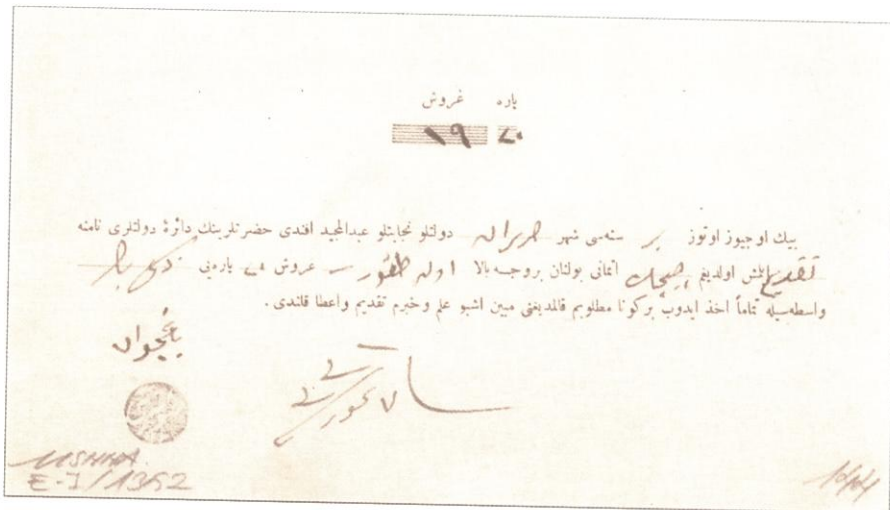 پاره غروش
۱۹
بيك اوچيوز اوتوز بر سنه‌سى شهر حزيران دولتلو نجابتلو عبدالمجيد افندى حضرتلرينك دائرۀ دولتلرى نامنه
تقديم ايلمش اولديغم چيچك اثمانى بولنان بروجه بالا اون طقوز غروش پاره‌يى
واسطه‌سيله تماماً اخذ ايدوب بركونا مطلوبم قالمديغنى مبين اشبو علم وخبرم تقديم واعطا قلندى .
باغچوان
E-I/1352